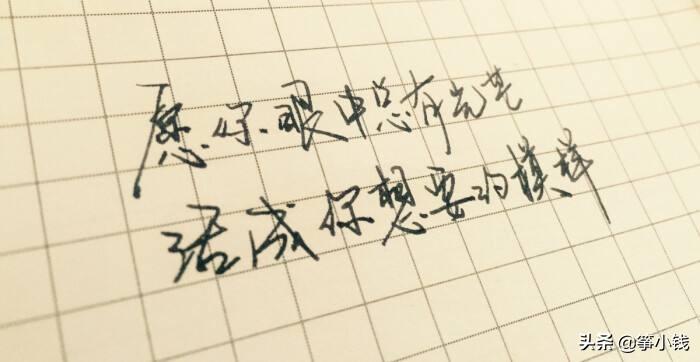 愿你眼中总有光芒
活成你想要的模样
头条 @筝小钱